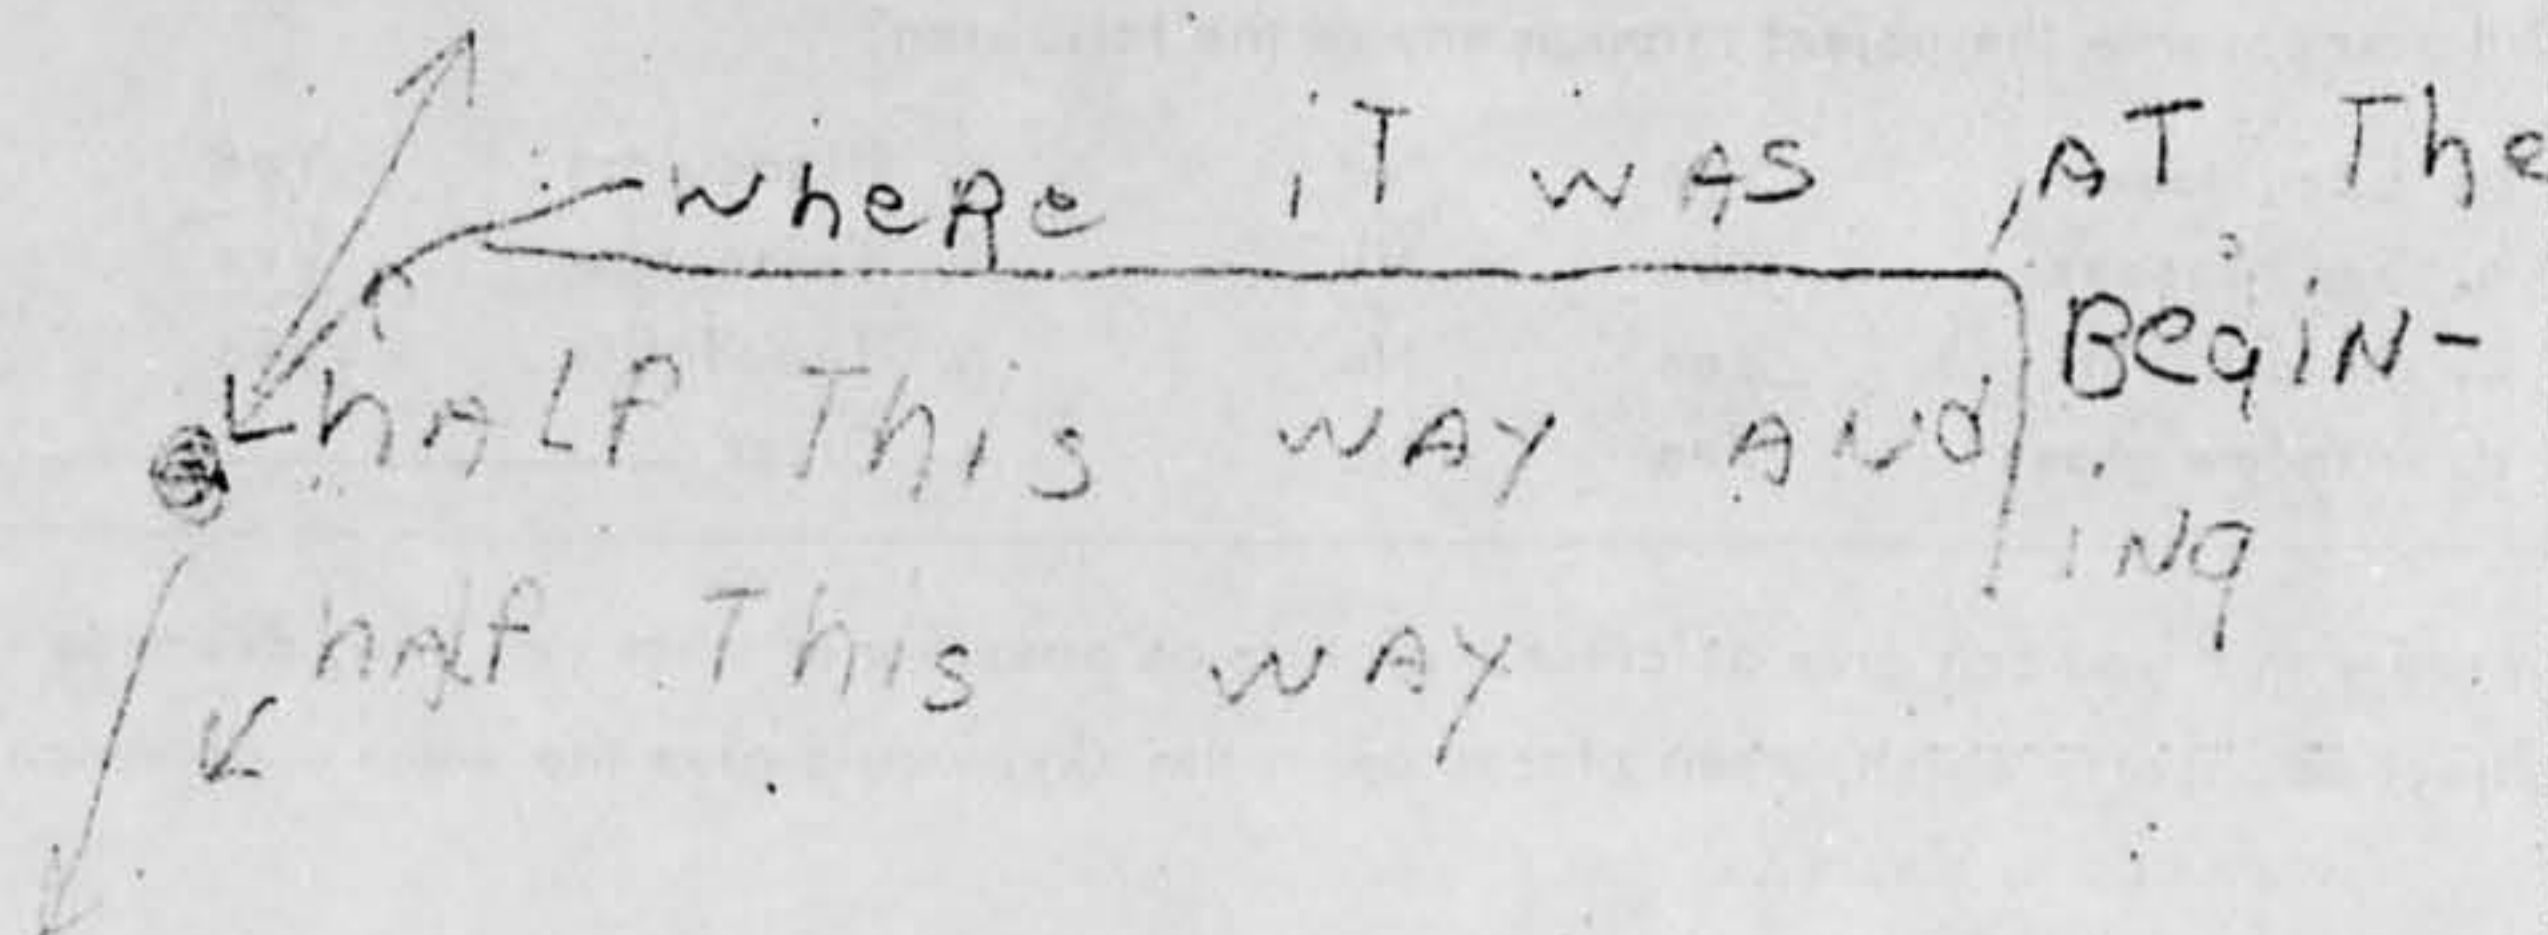 where iT wAS AT The
BegiN-
iNg
hALF This wAY ANd
hALf This wAY